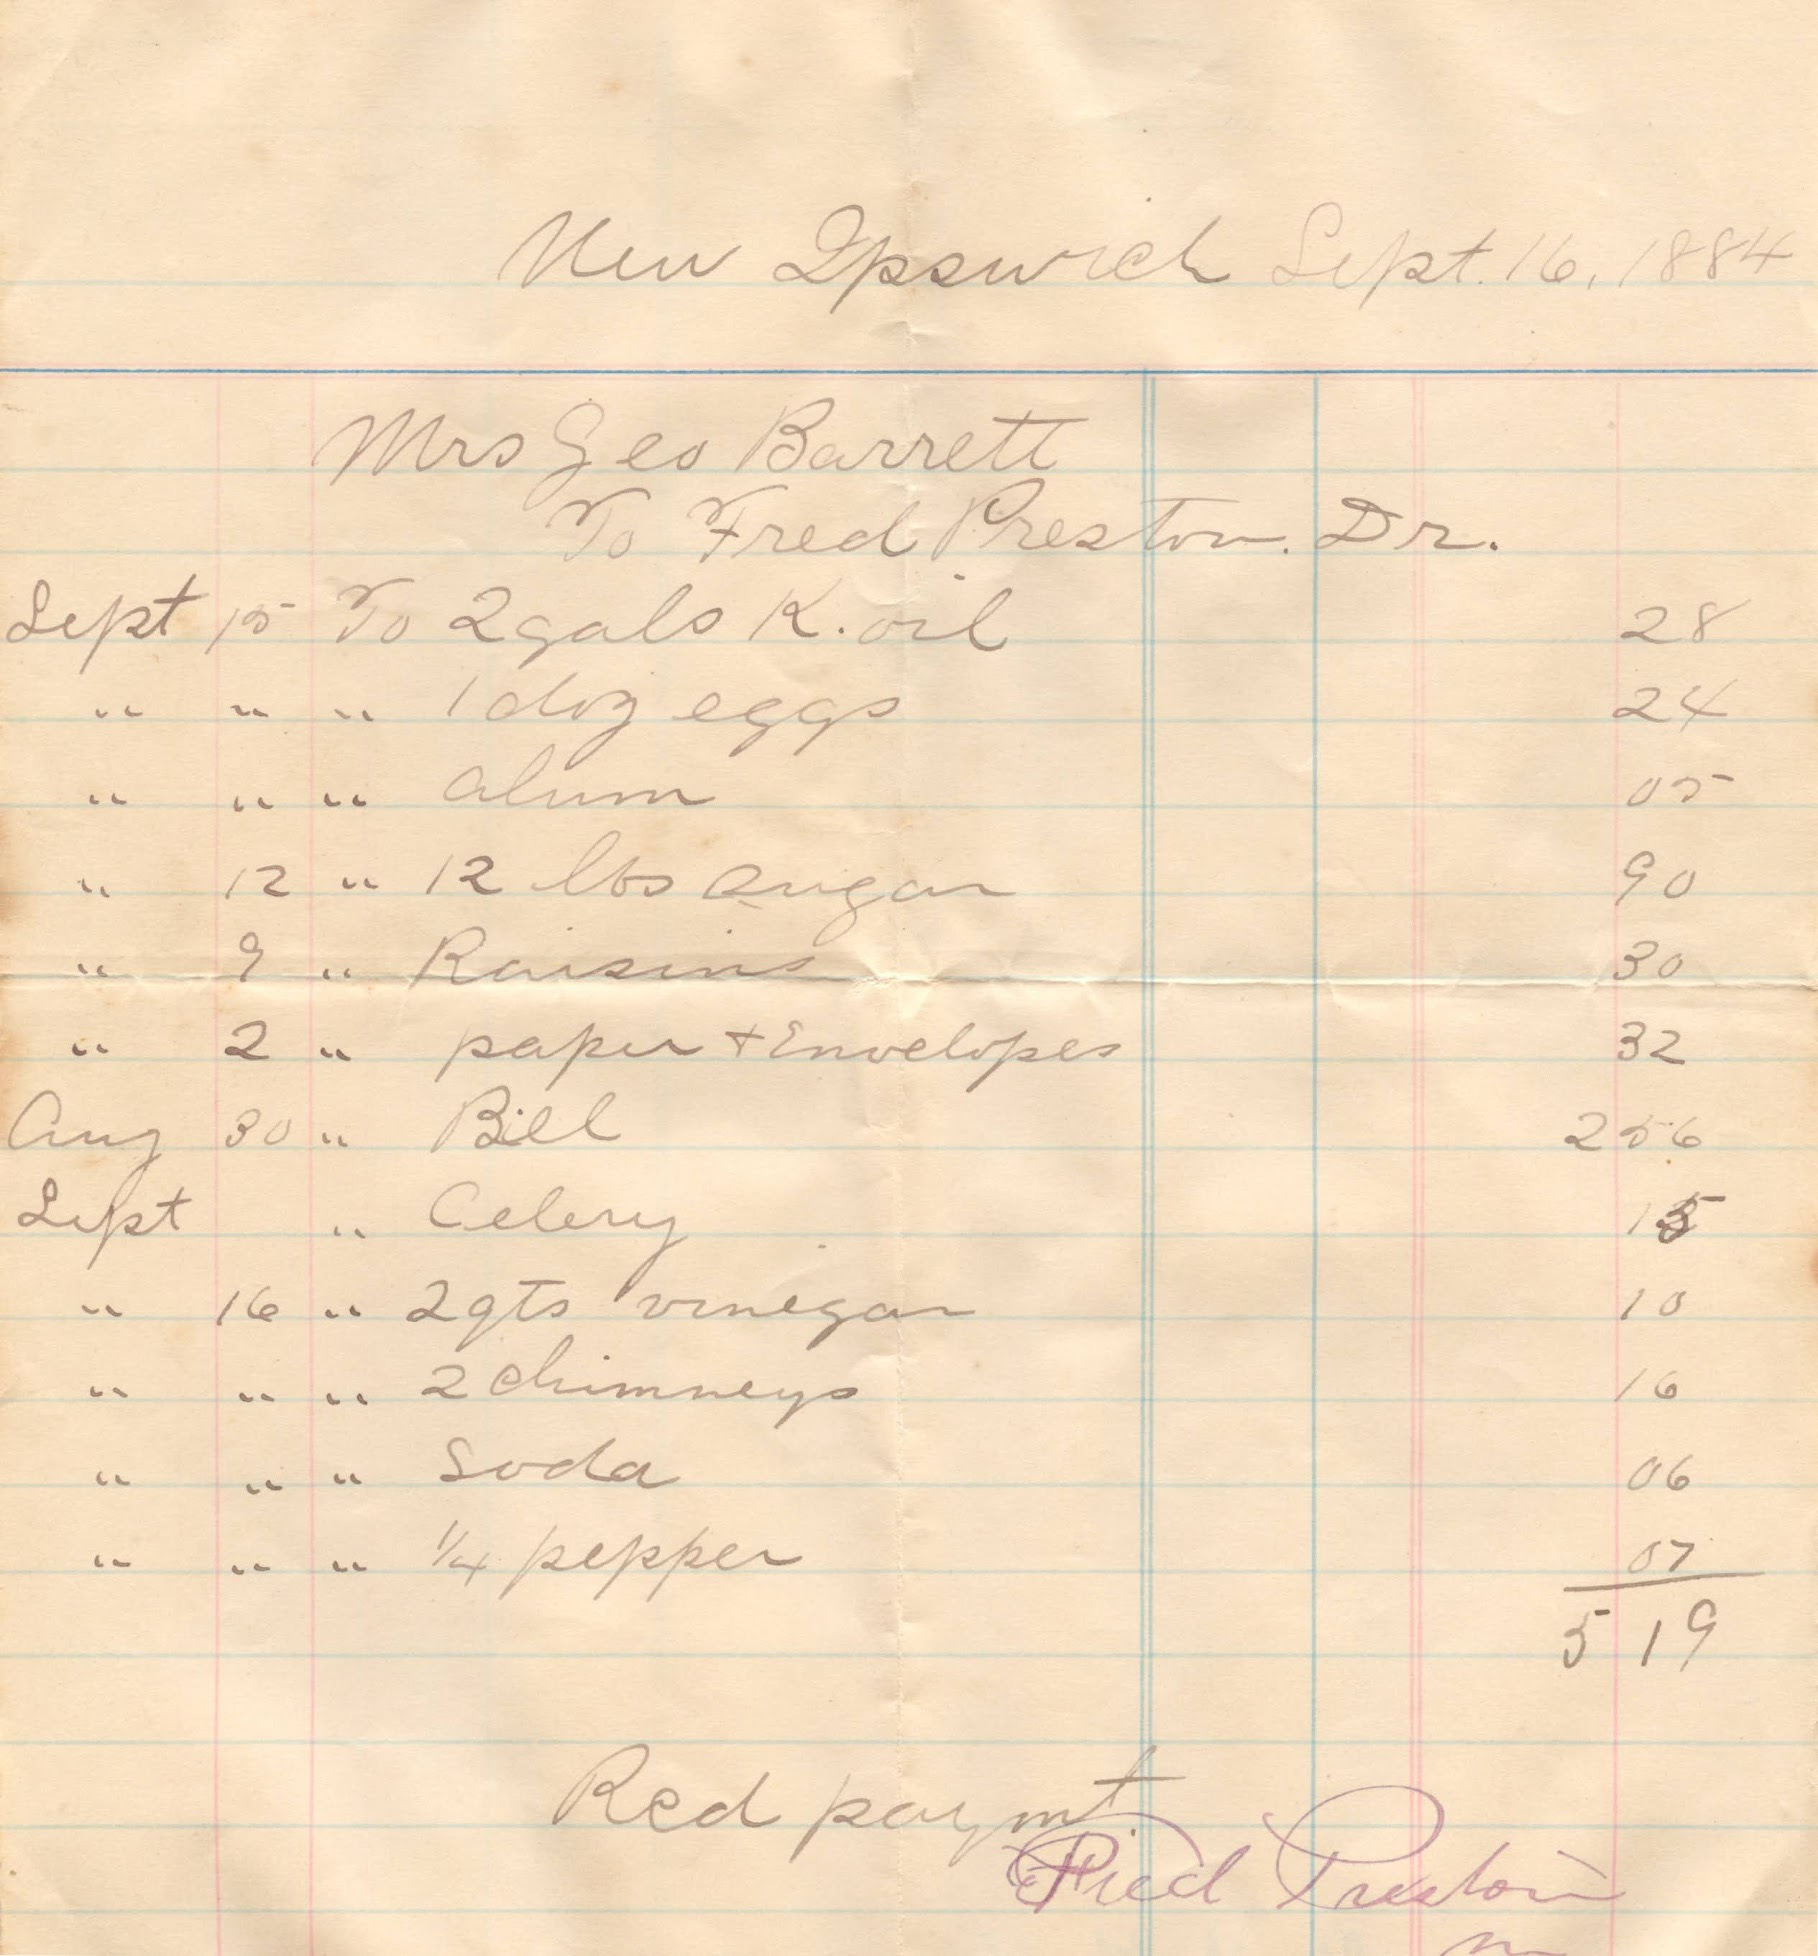 New Ipswich Sept. 16, 1884
Mrs Geo Barrett
To Fred Preston. Dr.
Sept 15 To 2 gals K. oil 28
" " " 1 doz eggs 24
" " " alum 05
" 12 " 12 lbs sugar 90
" 9 " Raisins 30
" 2 " paper + Envelopes 32
Aug 30 " Bill 2 56
Sept " Celery 15
" 16 " 2 qts vinegar 10
" " " 2 chimneys 16
" " " Soda 06
" " " 1/4 pepper 07
5 19
Recd paymt.
Fred Preston